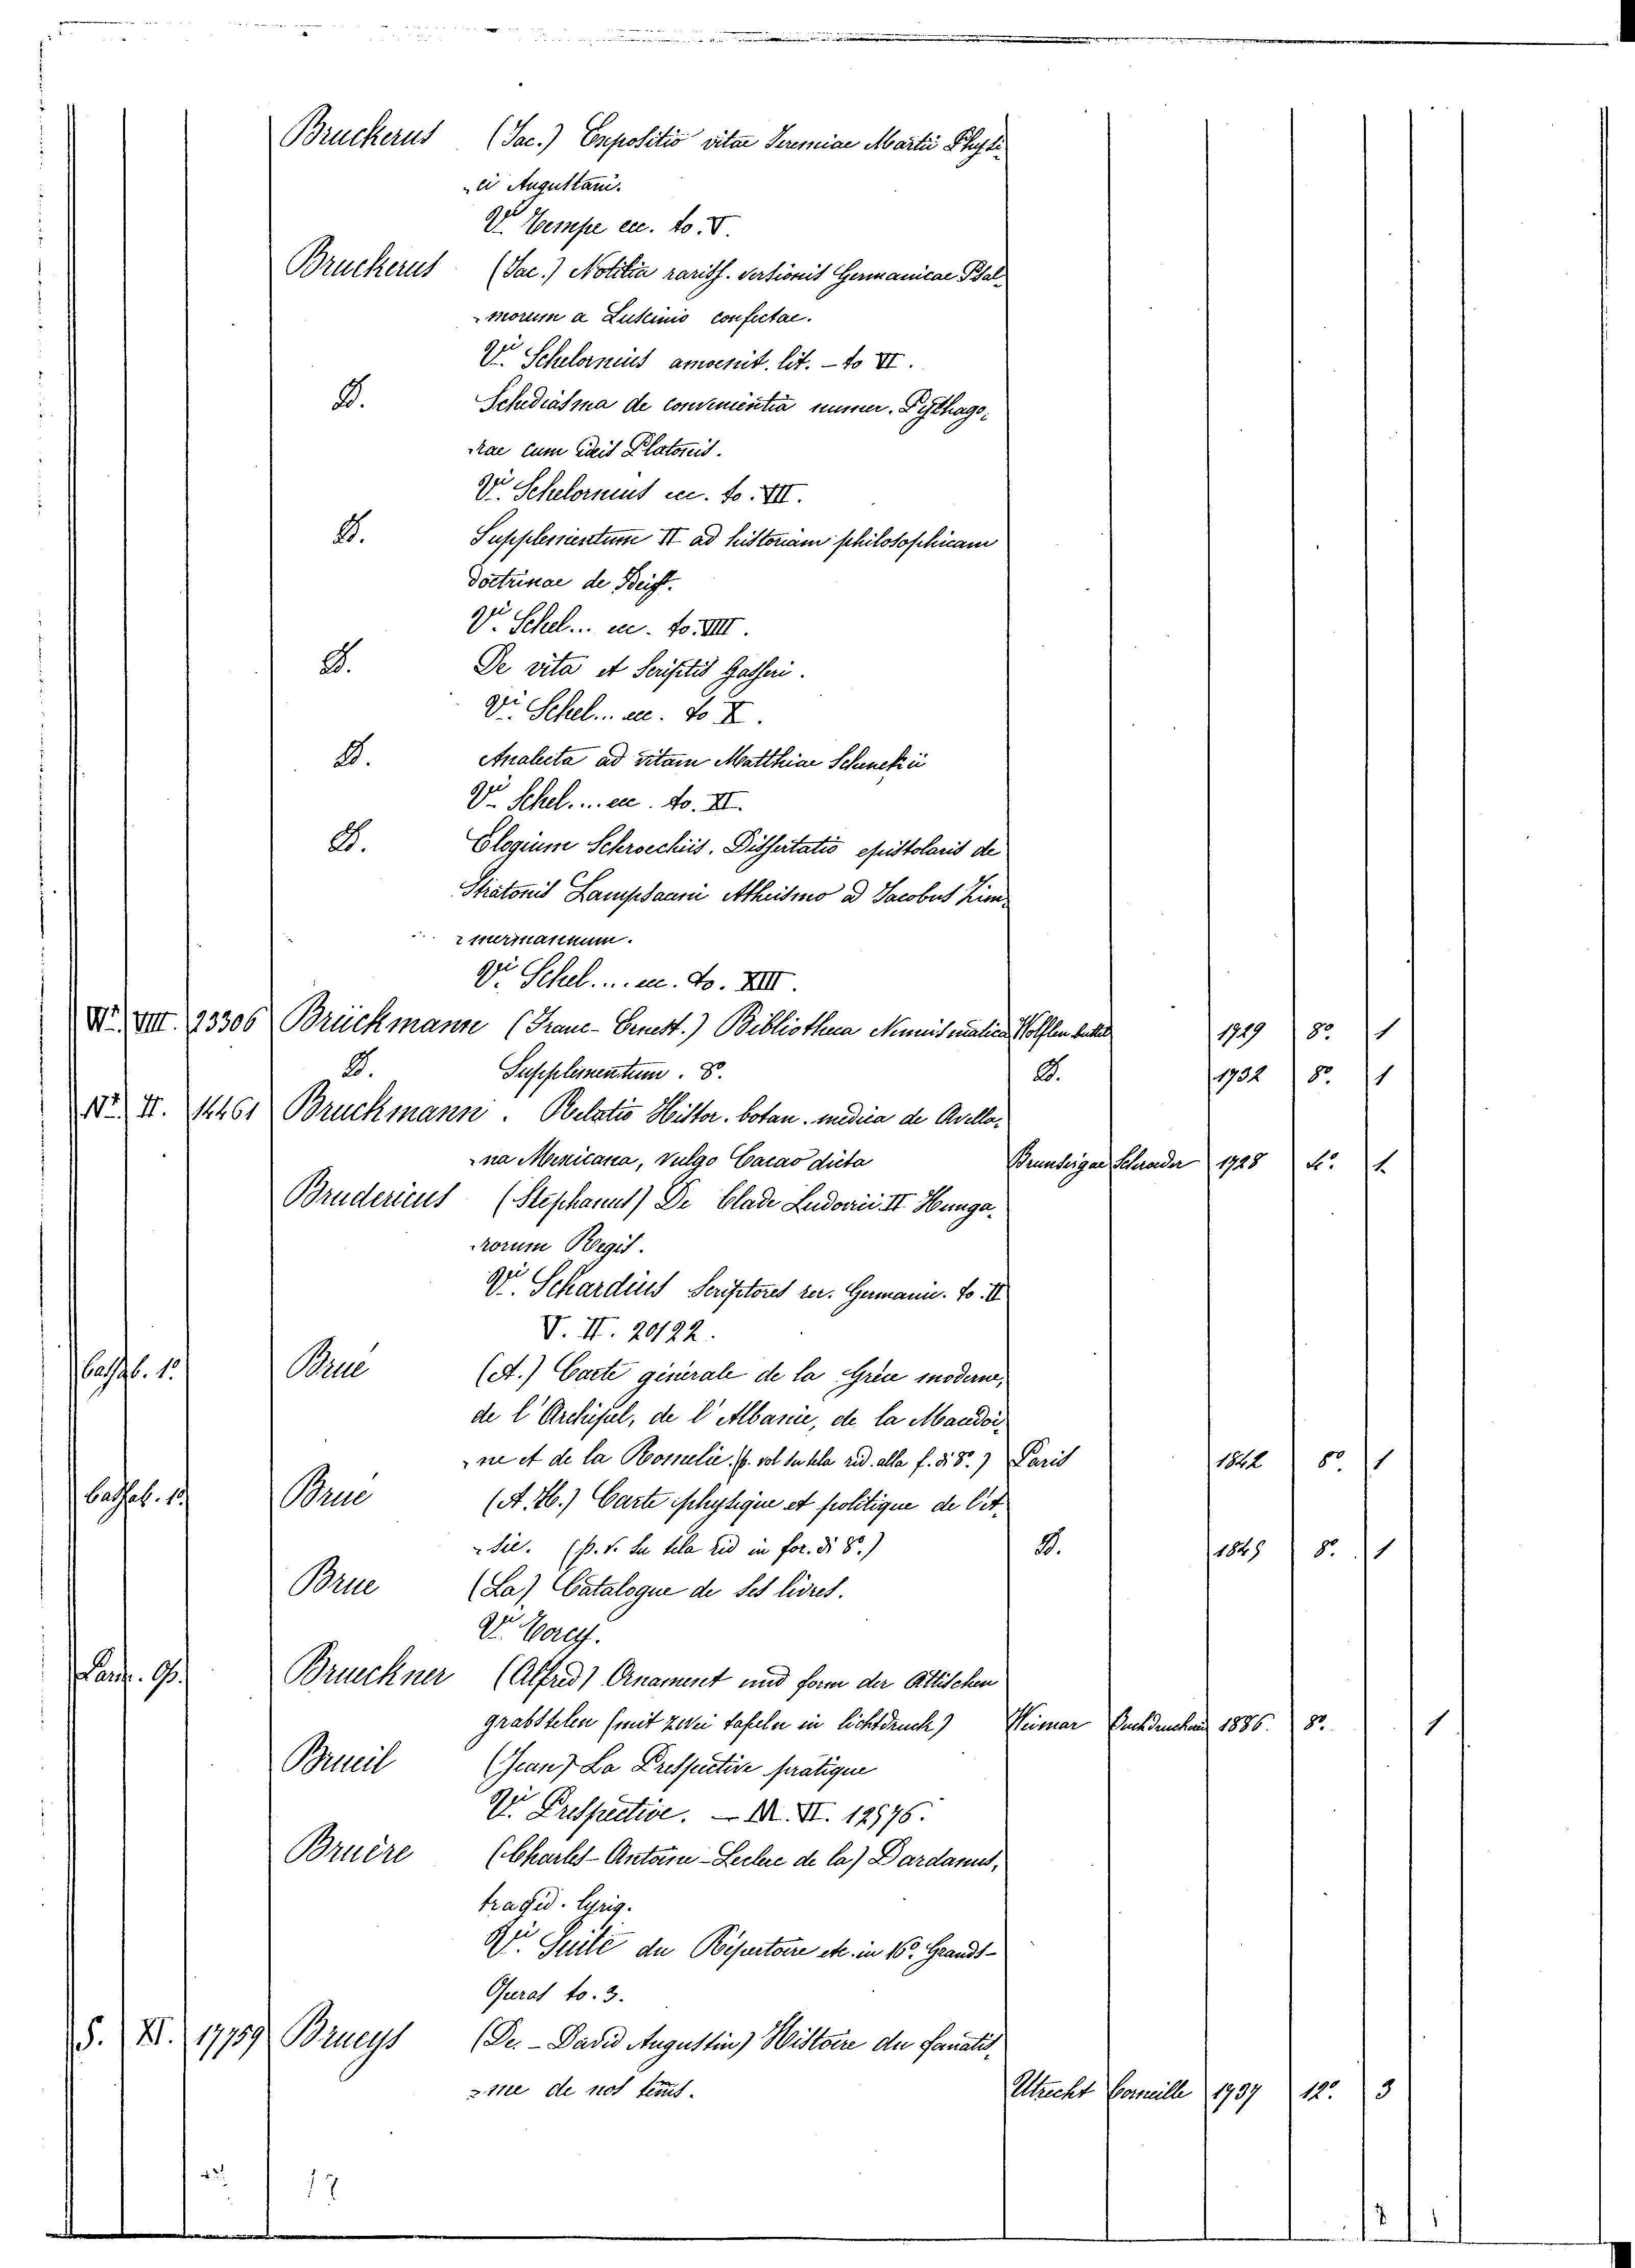 Bruckerus (Jac.) Expositio vitae Jeremiae Martii Physi-
ci Augustani.
Vi. Tempe ecc. to. V.
Bruckerus (Jac.) Notitia rariss. versionis Germanicae Psal-
morum a Luscinio confectae.
Vi. Schelornius amoenit. lit. - to VI.
D. Schediasma de convenientia numer. Pythago-
rae cum ideis Platonis.
Vi. Schelornius ecc. to. VII.
D. Supplementum II ad historiam philosophicam
doctrinae de Ideis.
Vi. Schel... ecc. to. VIII.
D. De vita et Scriptis Gasseri.
Vi. Schel... ecc. to X.
D. Analecta ad vitam Matthiae Schenckii
Vi. Schel.... ecc. to. XI.
D. Elogium Schroeckiis. Dissertatio epistolaris de
Stratonis Lampsaceni Atheismo ad Jacobus Zim-
mermannum.
Vi. Schel.... ecc. to. XIII.
VIII. 23306 Brückmann (Franc-Ernest.) Bibliotheca Numismatica Wolffenbuttel 1729 8º 1
D. Supplementum. 8º. D. 1732 8º 1
II. 14461 Bruckmann. Relatio Histor. botan. medica de Avella-
na Mexicana, vulgo Cacao dicta Brunsvigae Schroder 1728 4º 1
Brudericus (Stephanus) De Clade Ludovici II Hunga-
rorum Regis.
Vi. Schardius Scriptores rer. Germanic. to. II
V. II. 20122.
Cassab. 1º Brue (A.) Carte générale de la Grèce moderne,
de l'Archipel, de l'Albanie, de la Macedoi-
ne et de la Romelie. (p. vol su tela rid. alla f. di 8º.) Paris 1842 8º 1
Cassab. 1º Brue (A. H.) Carte physique et politique de l'A-
sie. (p. v. su tela rid in for. di 8º.) D. 1845 8º 1
Brue (La) Catalogue de ses livres.
Vi. Vorcy.
Brueckner (Alfred) Ornament und form der Attischen
grabstelen (mit zwei tafeln in lichtdruck) Weimar Buchdruckerei 1886. 8º. 1
Brueil (Jean) La Prespective pratique
Vi. Prespective. — M. VI. 12576.
Bruère (Charles-Antoine-Leclere de la) Dardanus,
tragéd. lyriq.
Vi. Suite du Répertoire etc. in 16º. Grands-
Operas to. 3.
S. XI. 17759 Brueys (De. - David Augustin) Histoire du fanatis-
me de nos tems. Utrecht Corneille 1737 12º. 3
17